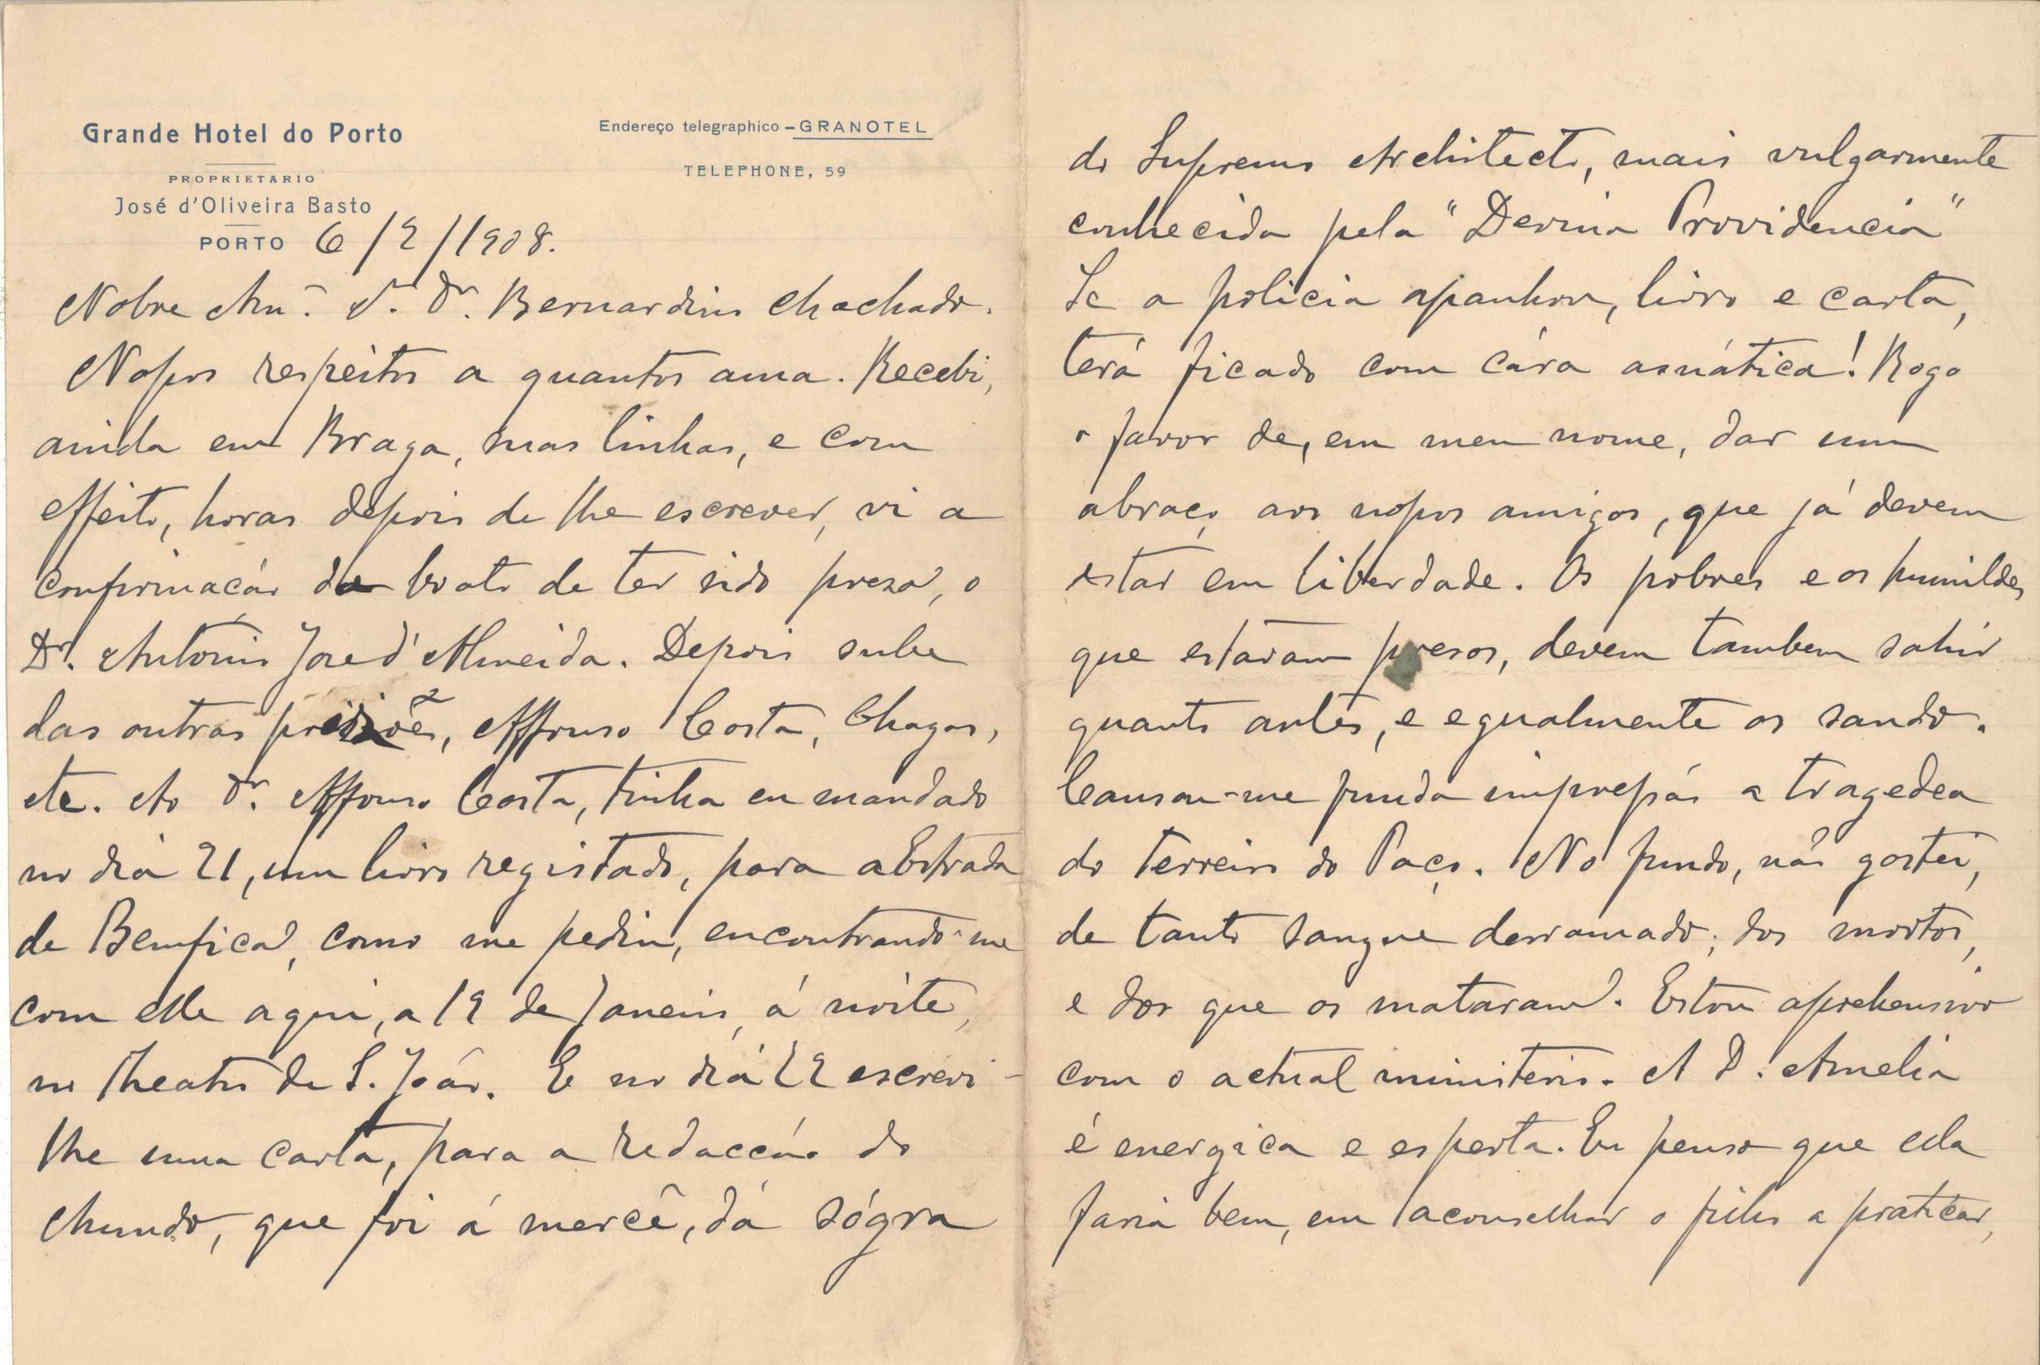 Grande Hotel do Porto
PROPRIETARIO
José d'Oliveira Basto
PORTO 6/2/1908.
Endereço telegraphico - GRANOTEL
TELEPHONE, 59
Nobre Am.º S.r Dr. Bernardino Machado.
Nossos respeitos a quantos ama. Recebi,
ainda em Braga, suas linhas, e com
effeito, horas depois de lhe escrever, vi a
confirmação do boato de ter sido preso, o
Dr. Antonio José d'Almeida. Depois soube
das outras prisões, Affonso Costa, Chagas,
etc. Ao Dr. Affonso Costa, tinha eu mandado
no dia 21, um livro registado, para a Estrada
de Bemfica, como me pediu, encontrando-me
com elle aqui, a 19 de Janeiro, á noite,
no Theatro de S. João. E no dia 22 escrevi-
lhe uma carta, para a redacção do
Mundo, que foi á mercê, dá sógra
do Supremo Architecto, mais vulgarmente
conhecida pela "Devina Providencia"
Se a policia apanhou, livro e carta,
terá ficado com cára asnática! Rogo
o favor de, em meu nome, dar um
abraço aos nossos amigos, que já devem
estar em liberdade. Os pobres e os humildes
que estavam presos, devem tambem sahir
quanto antes, e egualmente os saudo.
Causou-me funda impressão a tragedea
do Terreiro do Paço. No fundo, não gostei,
de tanto sangue derramado; dos mortos,
e dos que os mataram. Estou aprehensivo
com o actual ministerio. A D. Amelia
é energica e esperta. Eu penso que ella
faria bem, em aconselhar o filho a praticar,